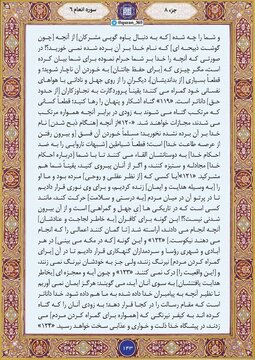 جزء ۸
سوره انعام ۶
و شما را چه شده [که به دنبال یاوه گویی مشرکان] از آنچه [چون
گوشت ذبیحه ای] که نام خدا بر آن برده شده نمی خورید؟! در
صورتی که آنچه را خدا بر شما حرام نموده برای شما بیان کرده
است، مگر چیزی که [برای حفظ جانتان] به خوردن آن ناچار شوید؛ و
قطعاً بسیاری [از بداندیشان]، دیگران را از روی جهل و نادانی با هواهای
نفسانی خود گمراه می کنند؛ یقیناً پروردگارت به تجاوزکاران [از حدود
حق] داناتر است. «۱۱۹» گناه آشکار و پنهان را رها کنید؛ قطعاً کسانی
که مرتکب گناه می شوند به زودی در برابر آنچه همواره مرتکب
می شدند، مجازات خواهند شد. «۱۲۰» از آنچه [هنگام ذبح شدن] نام
خدا بر آن برده نشده نخورید؛ مسلماً خوردن آن فسق و بیرون رفتن
از عرصه طاعت خدا] است؛ قطعاً شیاطین [شبهات ناروایی را به ضد
احکام خدا] به دوستانشان القاء می کنند تا با شما [درباره احکام
خدا] مجادله و ستیزه کنند، و اگر از آنان پیروی کنید، یقیناً شما هم
مشرکید. «۱۲۱» آیا کسی که [از نظر عقلی و روحی] مرده بود و ما او
را [به وسیله هدایت و ایمان] زنده کردیم، و برای وی نوری قرار دادیم
تا در پرتو آن در میان مردم [به درستی و سلامت] حرکت کند، مانند
کسی است که در تاریکی ها [ی جهل و گمراهی] است و از آن بیرون
شدنی نیست؟! این گونه برای کافران [به خاطر لجاجت و عنادشان]
آنچه انجام می دادند، آراسته شد [تا گمان کنند اعمالی را که انجام
می دهند نیکوست.] «۱۲۲» و این گونه [که در مکه می بینی] در هر
آبادی و شهری رؤسا و سردمداران گنهکاری قرار دادیم تا در آن [برای
گمراه کردن مردم] نیرنگ زنند، ولی جز به خودشان نیرنگ نمی زنند،
و [این واقعیت را] درک نمی کنند. «۱۲۳» و چون آیه و معجزه ای [به
هدایت یافتنشان] به سوی آنان آید، می گویند: هرگز ایمان نمی آوریم
تا نظیر آنچه به پیامبران خدا داده شده به ما هم داده شود. خدا داناتر
است که مقام رسالت را در کجا قرار دهد؛ به زودی آنان را که گناه
کرده اند به کیفر نیرنگی که [همواره برای گمراه کردن مردم] می
زدند، در پیشگاه خدا ذلت و خواری و عذابی سخت خواهد رسید. «۱۲۴»
۱۴۳